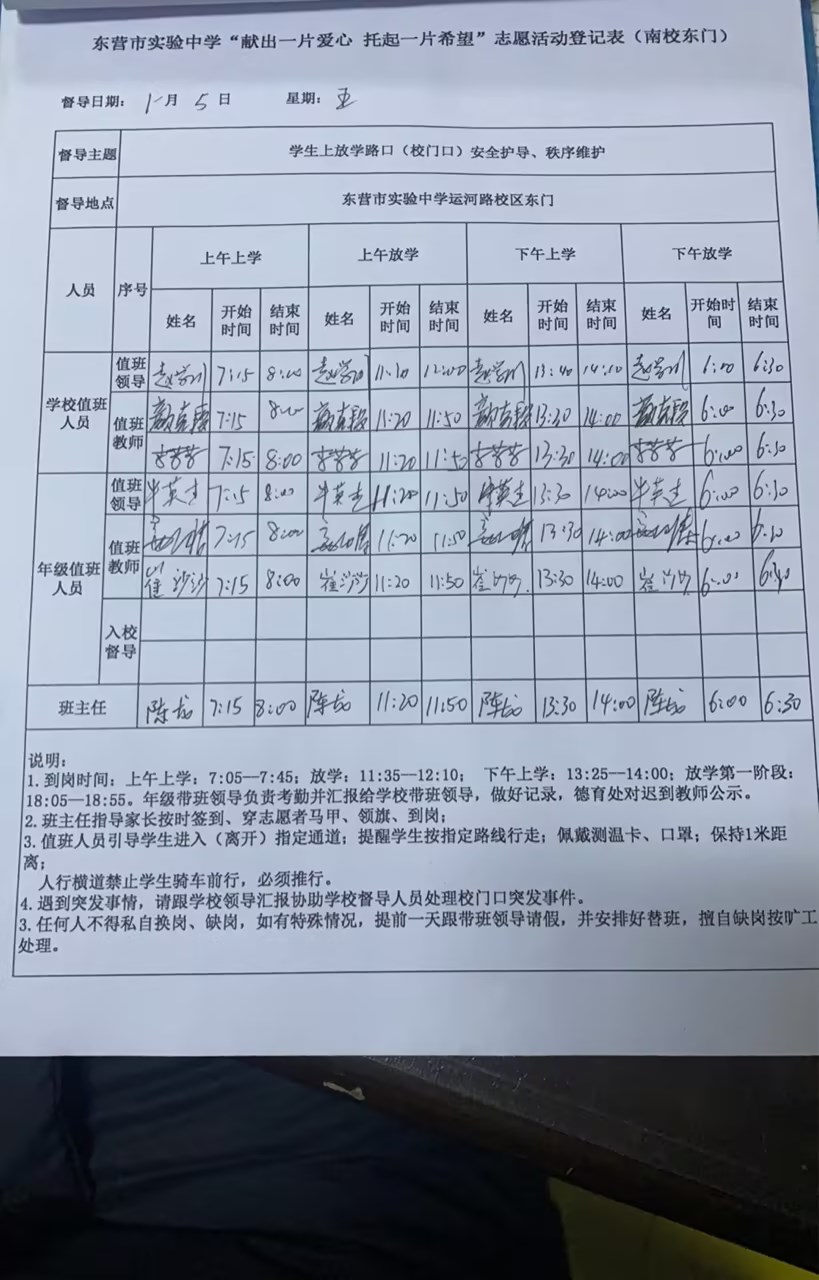 东营市实验中学“献出一片爱心 托起一片希望”志愿活动登记表（南校东门）
督导日期： 1 月 5 日 星期： 五
督导主题 学生上放学路口（校门口）安全护导、秩序维护
督导地点 东营市实验中学运河路校区东门
人员 序号 上午上学 上午放学 下午上学 下午放学
姓名 开始时间 结束时间 姓名 开始时间 结束时间 姓名 开始时间 结束时间 姓名 开始时间 结束时间
学校值班人员
值班领导 7:15 8:00 11:20 12:00 13:40 14:10 6:00 6:30
值班教师 7:15 8:00 11:20 11:50 13:30 14:00 6:00 6:30
李芳芳 7:15 8:00 李芳芳 11:20 11:50 李芳芳 13:30 14:00 李芳芳 6:00 6:30
年级值班人员
值班领导 牛英杰 7:15 8:00 牛英杰 11:20 11:50 牛英杰 13:30 14:00 牛英杰 6:00 6:30
值班教师 7:15 8:00 11:20 11:50 13:30 14:00 6:00 6:30
崔沙沙 7:15 8:00 崔沙沙 11:20 11:50 崔沙沙 13:30 14:00 崔沙沙 6:00 6:30
入校督导
班主任 陈龙 7:15 8:00 陈龙 11:20 11:50 陈龙 13:30 14:00 陈龙 6:00 6:30
说明：
1. 到岗时间：上午上学：7:05—7:45；放学：11:35—12:10； 下午上学：13:25—14:00；放学第一阶段：
18:05—18:55。年级带班领导负责考勤并汇报给学校带班领导，做好记录，德育处对迟到教师公示。
2. 班主任指导家长按时签到、穿志愿者马甲、领旗、到岗；
3. 值班人员引导学生进入（离开）指定通道；提醒学生按指定路线行走；佩戴测温卡、口罩；保持1米距
离；
人行横道禁止学生骑车前行，必须推行。
4. 遇到突发事情，请跟学校领导汇报协助学校督导人员处理校门口突发事件。
3. 任何人不得私自换岗、缺岗，如有特殊情况，提前一天跟带班领导请假，并安排好替班，擅自缺岗按旷工
处理。